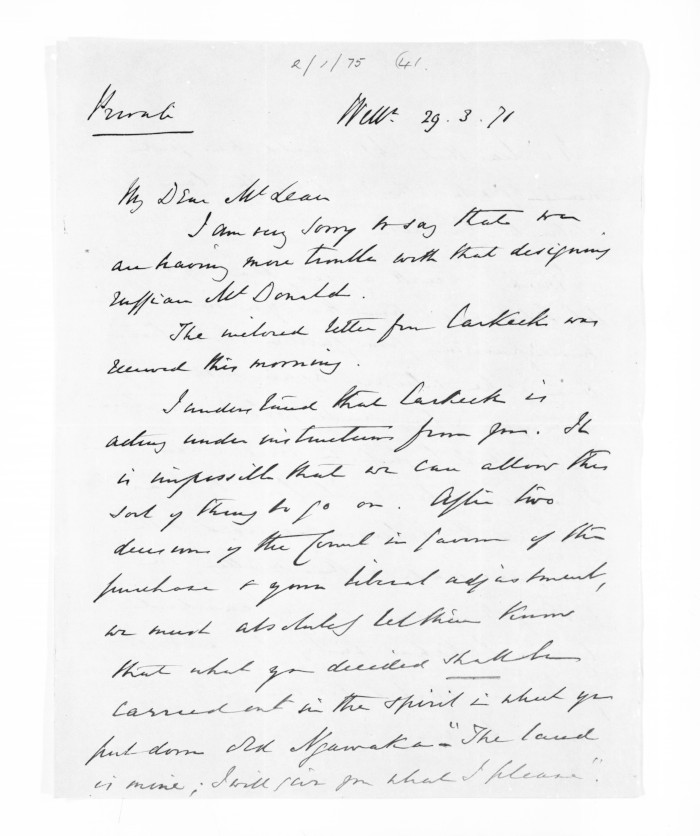 2/1/75 (41.
Private
Welln 29.3.71
My Dear McLean
I am very sorry to say that we
are having more trouble with that designing
ruffian McDonald.
The inclosed letter from Carkeek was
received this morning.
I understand that Carkeek is
acting under instructions from you. It
is impossible that we can allow this
sort of thing to go on. After two
decisions of the Court in favour of the
purchase & your liberal adjustment,
we must absolutely let them know
that what you decided shall be
carried out in the spirit in which you
put down old Ngawaka - "The land
is mine; I will give you what I please".